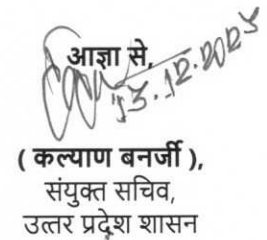 आज्ञा से,
13.12.2023
( कल्याण बनर्जी ),
संयुक्त सचिव,
उत्तर प्रदेश शासन